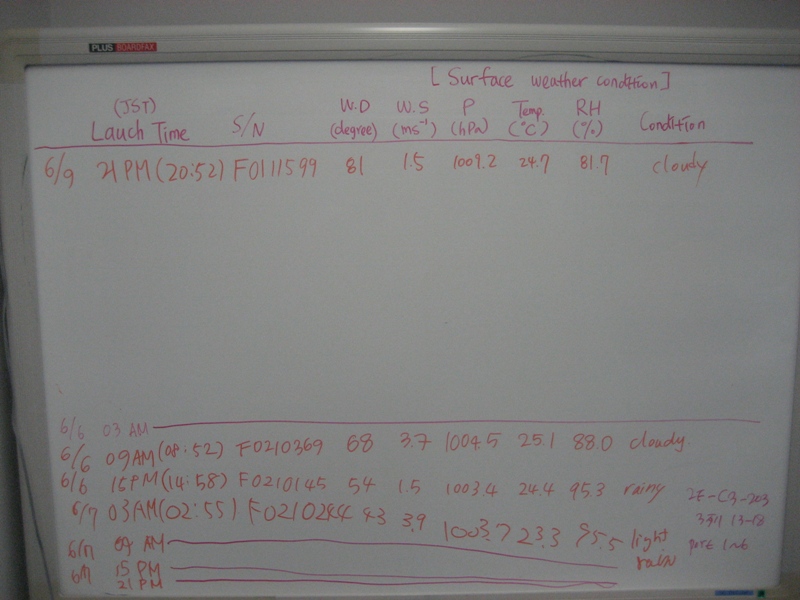 PLUS BOARDFAX
[Surface weather condition]
(JST) W.D W.S P Temp. RH
Lauch Time S/N (degree) (ms⁻¹) (hPa) (°C) (%) Condition
6/9 21PM (20:52) F0111599 81 1.5 1009.2 24.7 81.7 cloudy
6/6 03 AM
6/6 09AM (08:52) F0210369 68 3.7 1004.5 25.1 88.0 cloudy
6/6 15PM (14:58) F0210145 54 1.5 1003.4 24.4 95.3 rainy
6/7 03AM (02:55) F0210244 43 3.9 1003.7 23.3 95.5 light rain
6/7 09 AM
6/7 15 PM
21 PM
13-18